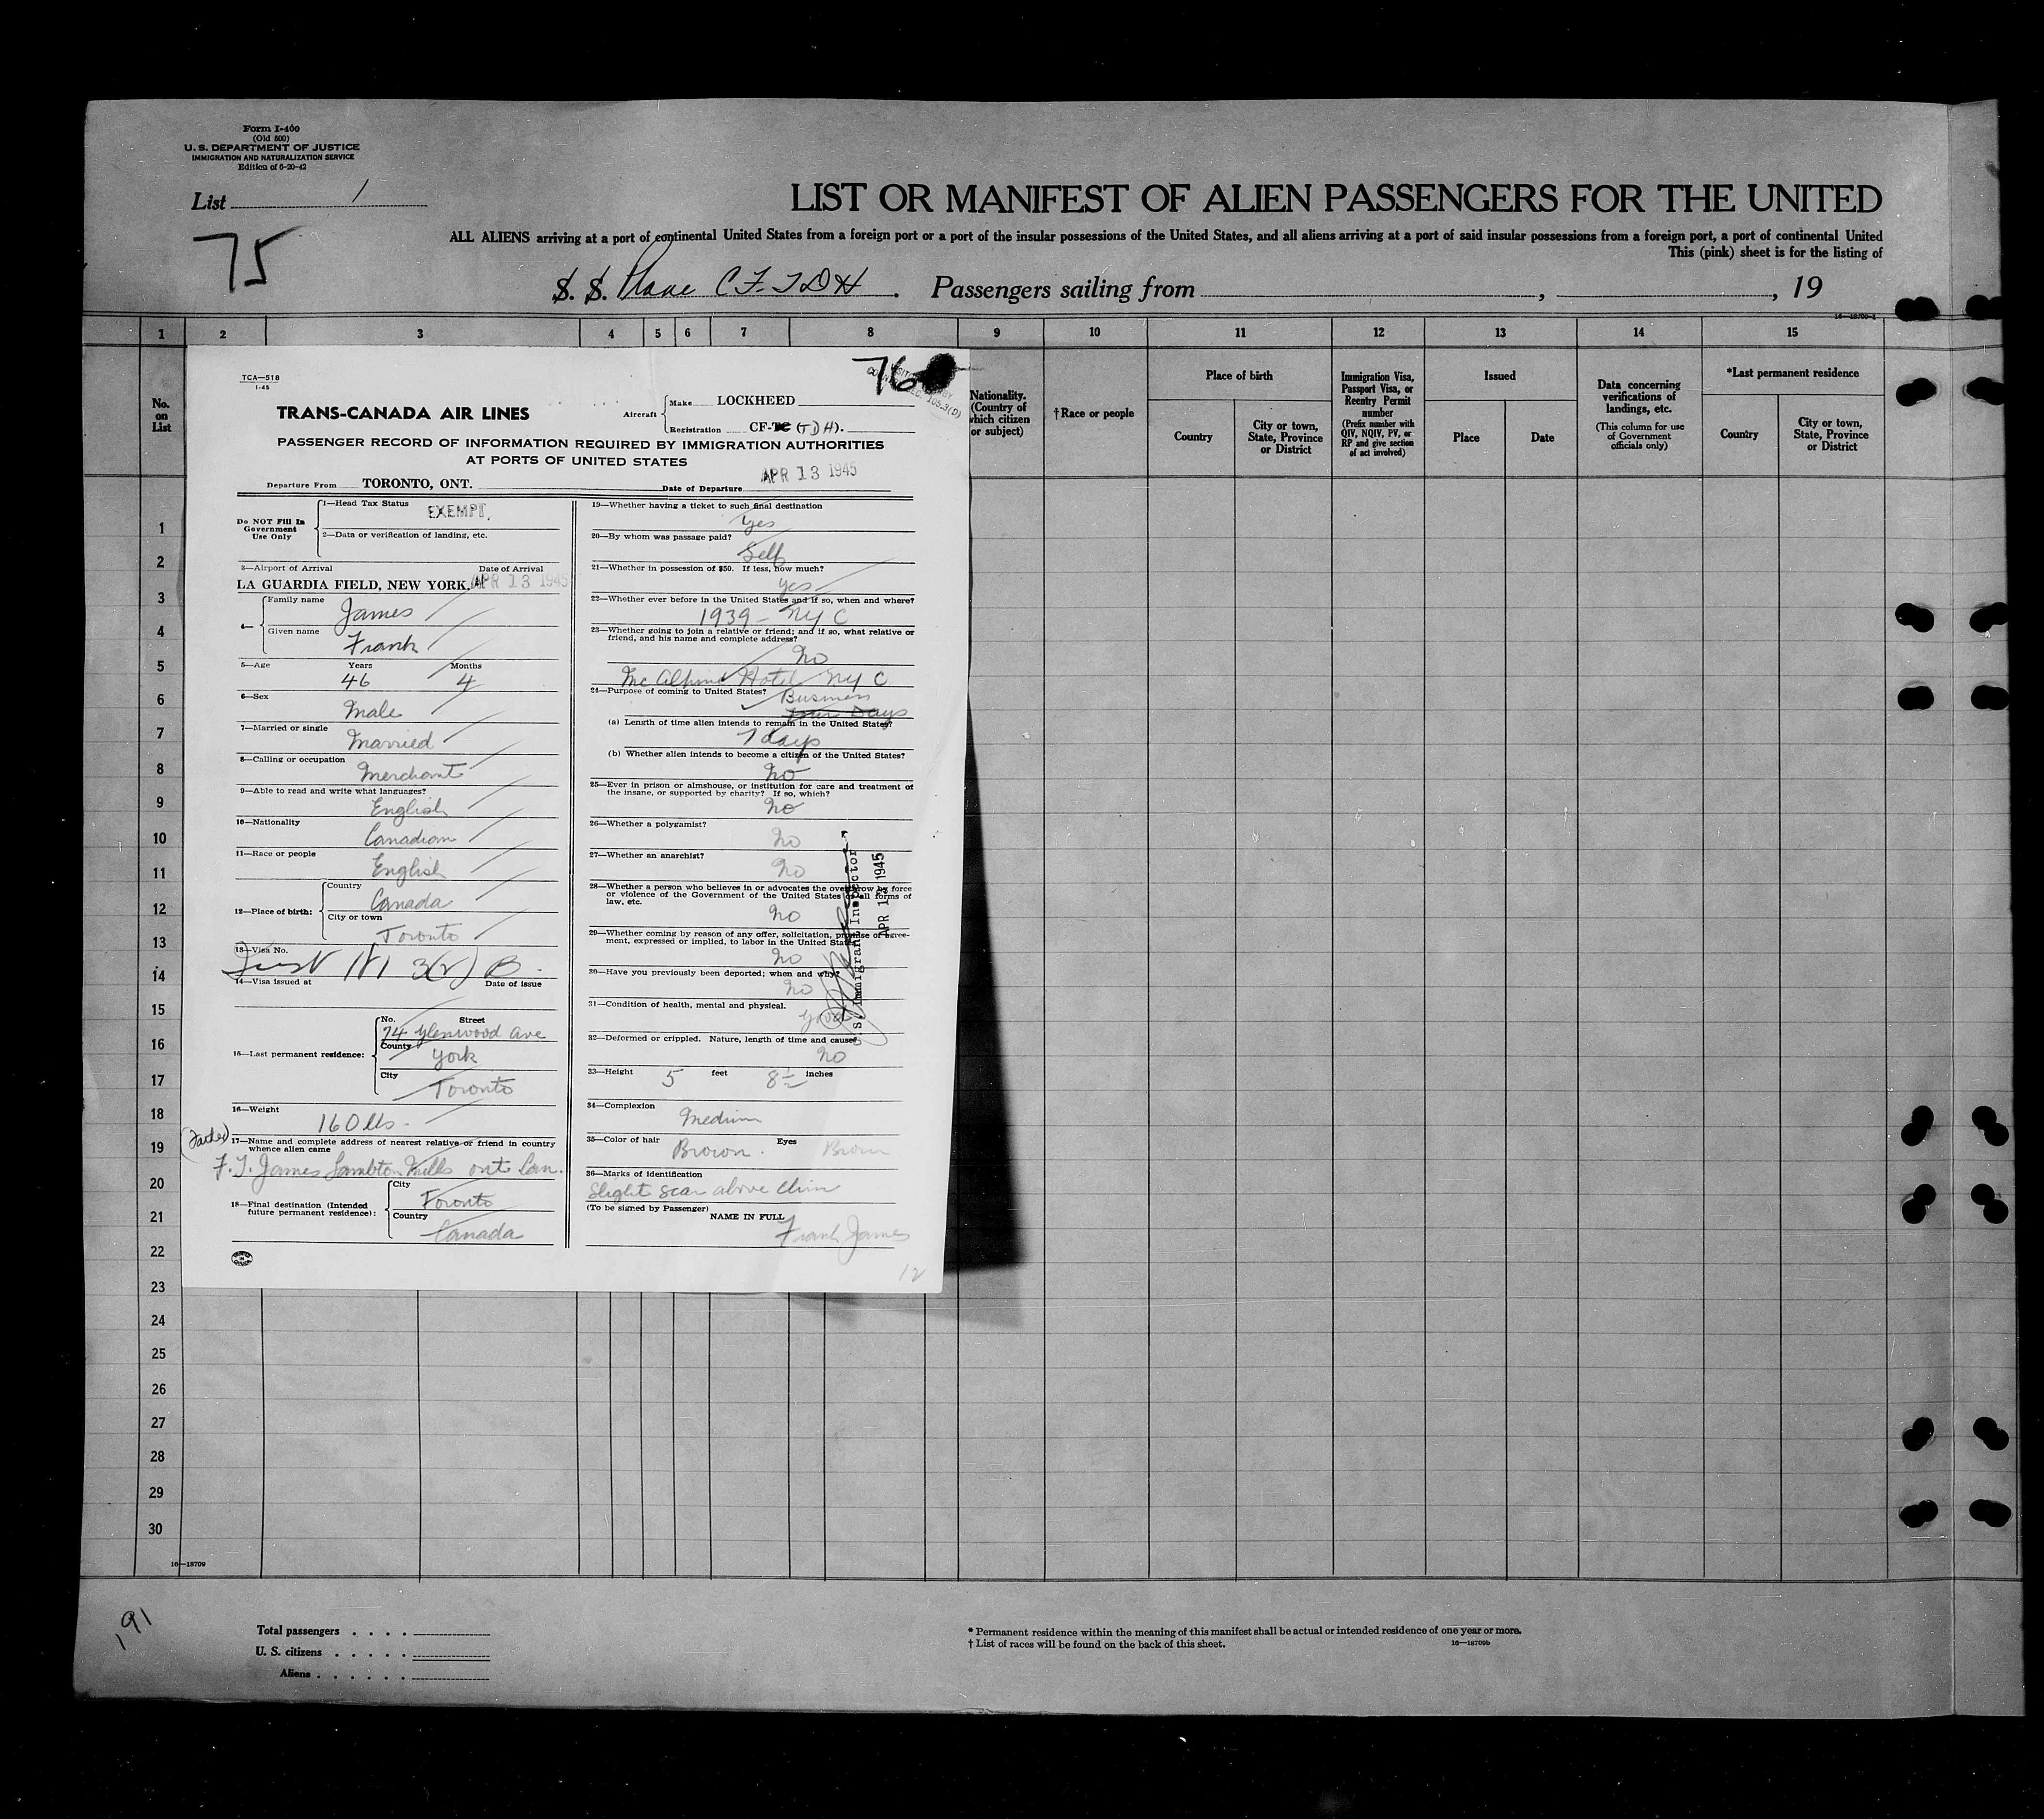 Form I-400
(Old 500)
U. S. DEPARTMENT OF JUSTICE
IMMIGRATION AND NATURALIZATION SERVICE
Edition of 6-20-42
List 1
75
LIST OR MANIFEST OF ALIEN PASSENGERS FOR THE UNITED
ALL ALIENS arriving at a port of continental United States from a foreign port or a port of the insular possessions of the United States, and all aliens arriving at a port of said insular possessions from a foreign port, a port of continental United
This (pink) sheet is for the listing of
S. S. Plane CF. TDH. Passengers sailing from , , 19
16—18709-1
1 2 3 4 5 6 7 8 9 10 11 12 13 14 15
No. on List
Nationality. (Country of which citizen or subject)
†Race or people
Place of birth
Country
City or town, State, Province or District
Immigration Visa, Passport Visa, or Reentry Permit number
(Prefix number with QIV, NQIV, PV, or RP and give section of act involved)
Issued
Place
Date
Data concerning verifications of landings, etc.
(This column for use of Government officials only)
*Last permanent residence
Country
City or town, State, Province or District
TCA—518
1-45
76
TRANS-CANADA AIR LINES
Aircraft
Make LOCKHEED
Registration CF-TC (TDH).
PASSENGER RECORD OF INFORMATION REQUIRED BY IMMIGRATION AUTHORITIES
AT PORTS OF UNITED STATES
Departure From TORONTO, ONT.
Date of Departure APR 13 1945
Do NOT Fill In Government Use Only
1—Head Tax Status EXEMPT.
2—Data or verification of landing, etc.
3—Airport of Arrival Date of Arrival
LA GUARDIA FIELD, NEW YORK. APR 13 1945
4—
Family name James
Given name Frank
5—Age Years Months
46 4
6—Sex
Male
7—Married or single
Married
8—Calling or occupation
Merchant
9—Able to read and write what languages?
English
10—Nationality
Canadian
11—Race or people
English
12—Place of birth:
Country
Canada
City or town
Toronto
13—Visa No.
3(2) B.
14—Visa issued at Date of issue
15—Last permanent residence:
No. Street
74 Glenwood Ave
County
York
City
Toronto
16—Weight
160 lbs.
(Father)
17—Name and complete address of nearest relative or friend in country
whence alien came
F. T. James Lambton Mills Ont Can.
18—Final destination (Intended
future permanent residence):
City
Toronto
Country
Canada
19—Whether having a ticket to such final destination
Yes
20—By whom was passage paid?
Self
21—Whether in possession of $50. If less, how much?
Yes
22—Whether ever before in the United States and if so, when and where?
1939 - NYC
23—Whether going to join a relative or friend; and if so, what relative or
friend, and his name and complete address?
No
McAlpine Hotel NYC
24—Purpose of coming to United States? Business
(a) Length of time alien intends to remain in the United States?
7 days
(b) Whether alien intends to become a citizen of the United States?
No
25—Ever in prison or almshouse, or institution for care and treatment of
the insane, or supported by charity? If so, which?
No
26—Whether a polygamist?
No
27—Whether an anarchist?
No
28—Whether a person who believes in or advocates the overthrow by force
or violence of the Government of the United States or all forms of
law, etc.
No
29—Whether coming by reason of any offer, solicitation, promise or agree-
ment, expressed or implied, to labor in the United States
No
30—Have you previously been deported; when and why?
No
31—Condition of health, mental and physical.
Good
32—Deformed or crippled. Nature, length of time and cause.
No
33—Height 5 feet 8½ inches
34—Complexion
Medium
35—Color of hair Eyes
Brown. Brown
36—Marks of identification
Slight scar above Chin
(To be signed by Passenger)
NAME IN FULL
Frank James
12
U.S. Immigrant Inspector
APR 13 1945
1
2
3
4
5
6
7
8
9
10
11
12
13
14
15
16
17
18
19
20
21
22
23
24
25
26
27
28
29
30
16—18709
191
Total passengers
U. S. citizens
Aliens
* Permanent residence within the meaning of this manifest shall be actual or intended residence of one year or more.
† List of races will be found on the back of this sheet.
16—18709b